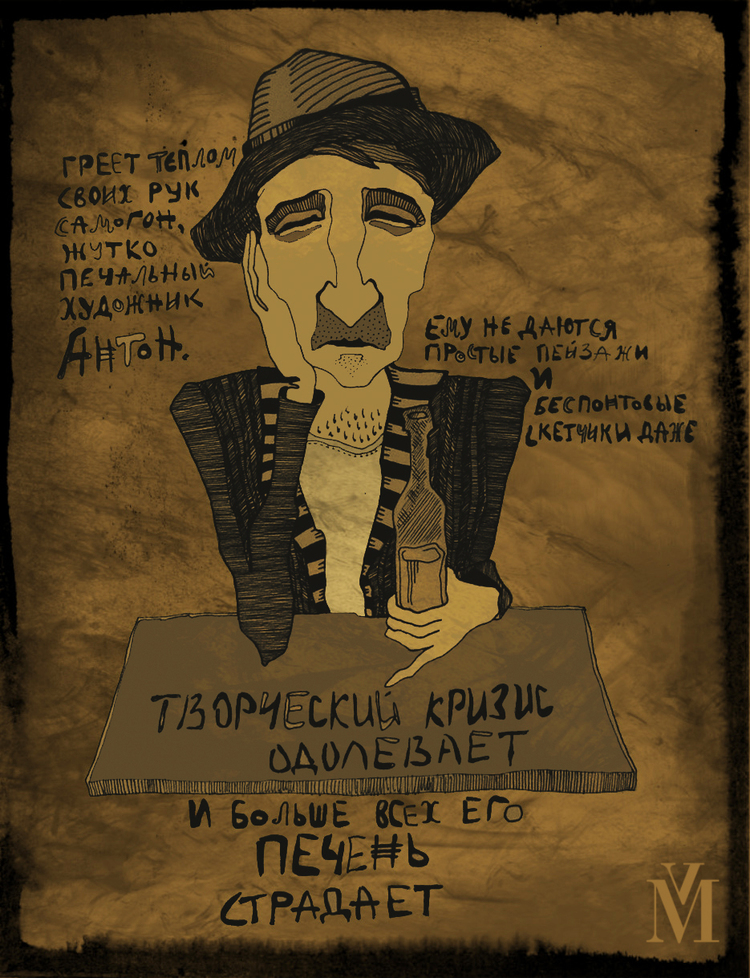 ГРЕЕТ ТЕПЛОМ
СВОИХ РУК
САМОГОН,
ЖУТКО
ПЕЧАЛЬНЫЙ
ХУДОЖНИК
АНТОН.
ЕМУ НЕ ДАЮТСЯ
ПРОСТЫЕ ПЕЙЗАЖИ
И
БЕСПОНТОВЫЕ
СКЕТЧИКИ ДАЖЕ
ТВОРЧЕСКИЙ КРИЗИС
ОДОЛЕВАЕТ
И БОЛЬШЕ ВСЕХ ЕГО
ПЕЧЕНЬ
СТРАДАЕТ
VM